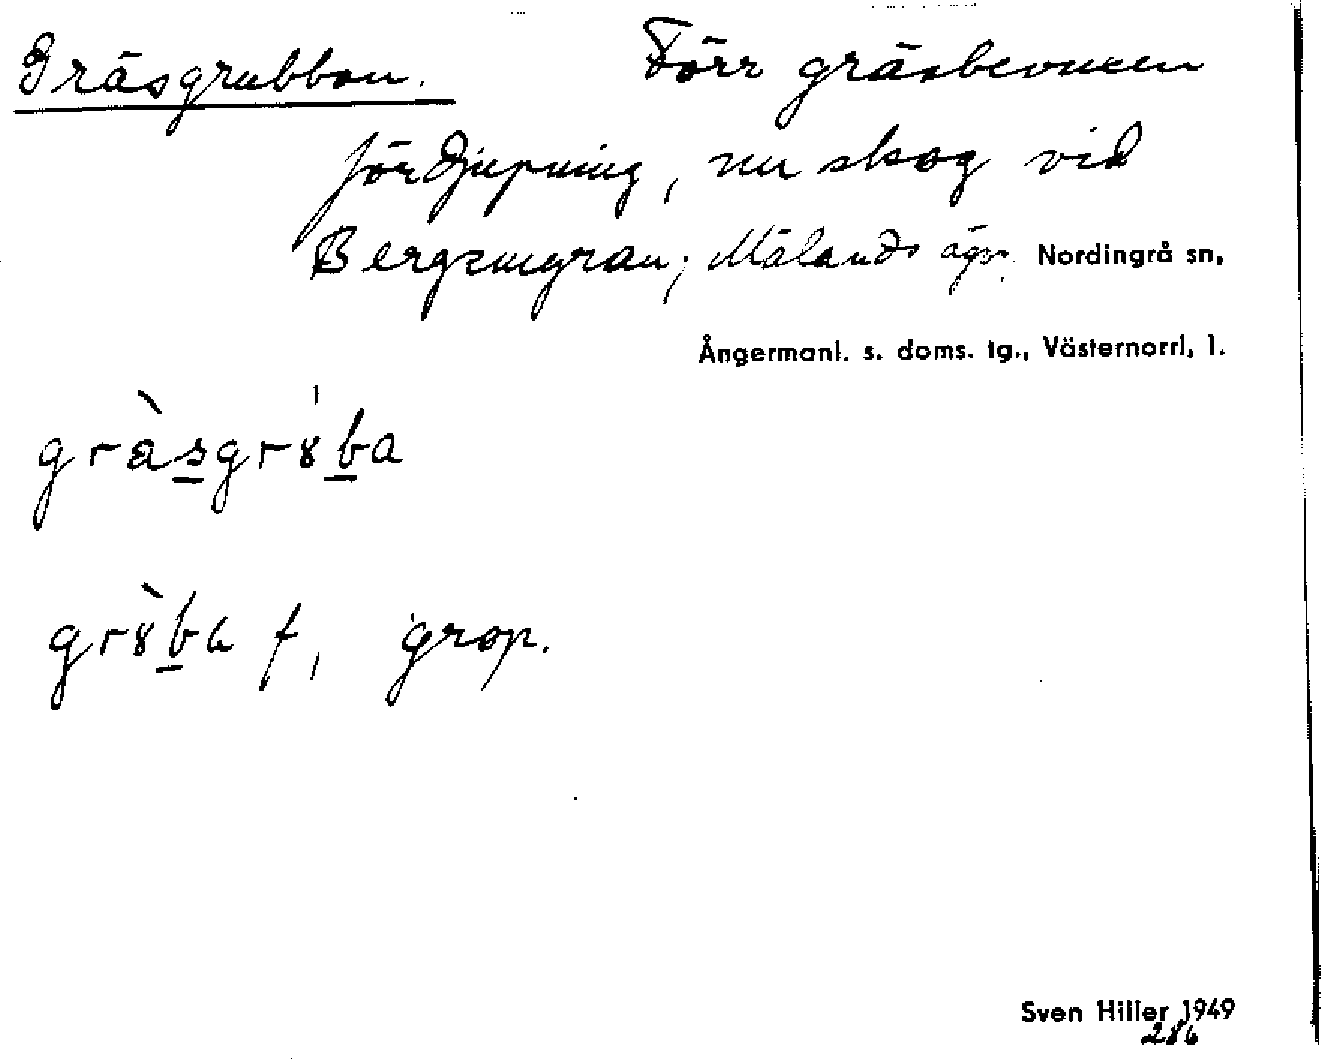 Gräsgrubban. Förr gräsbevuxen
fördjupning, nu skog vid
Mälands ägor. Nordingrå sn,
Ångermanl. s. doms. tg., Västernorrl. l.
gràsgrȣ́ba
grȣ̀ba f, grop.
Sven Hiller 1949
286